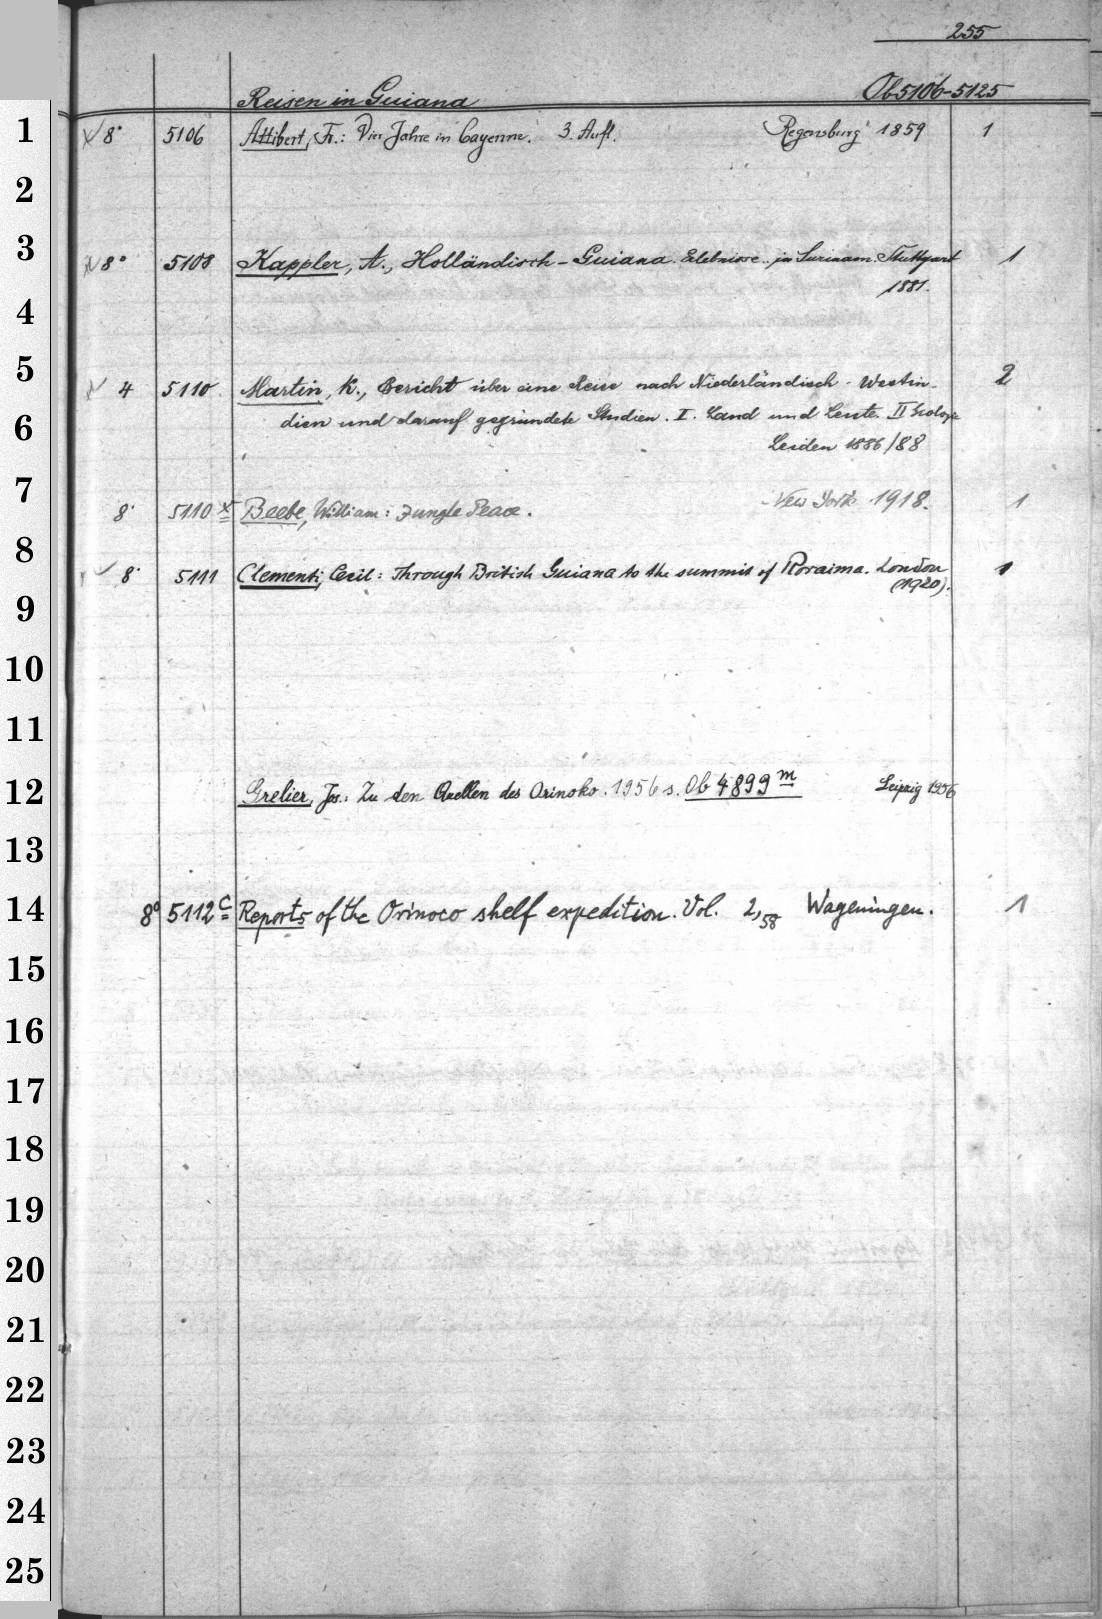 255
Reisen in Guiana Ob 5106-5125
1 8° 5106 Attibert, Fr.: Vier Jahre in Cayenne. 3. Aufl. Regensburg 1859 1
2
3 8° 5108 Kappler, A., Holländisch-Guiana. Erlebnisse.. in Surinam. Stuttgart 1
4 1881.
5 4 5110 Martin, K., Bericht über eine Reise nach Niederländisch-Westin- 2
6 dien und darauf gegründete Studien. I. Land und Leute. II Geologie
Leiden 1886/88
7 8° 5110 x Beebe, William: Jungle Peace. New York 1918. 1
8 8° 5111 Clementi, Cecil: Through British Guiana to the summit of Roraima. London 1
9 (1920).
10
11
12 Grelier, Jos.: Zu den Quellen des Orinoko. 1956 s. Ob 4899 m Leipzig 1956
13
14 8° 5112 c Reports of the Orinoco shelf expedition. Vol. 2,58 Wageningen. 1
15
16
17
18
19
20
21
22
23
24
25